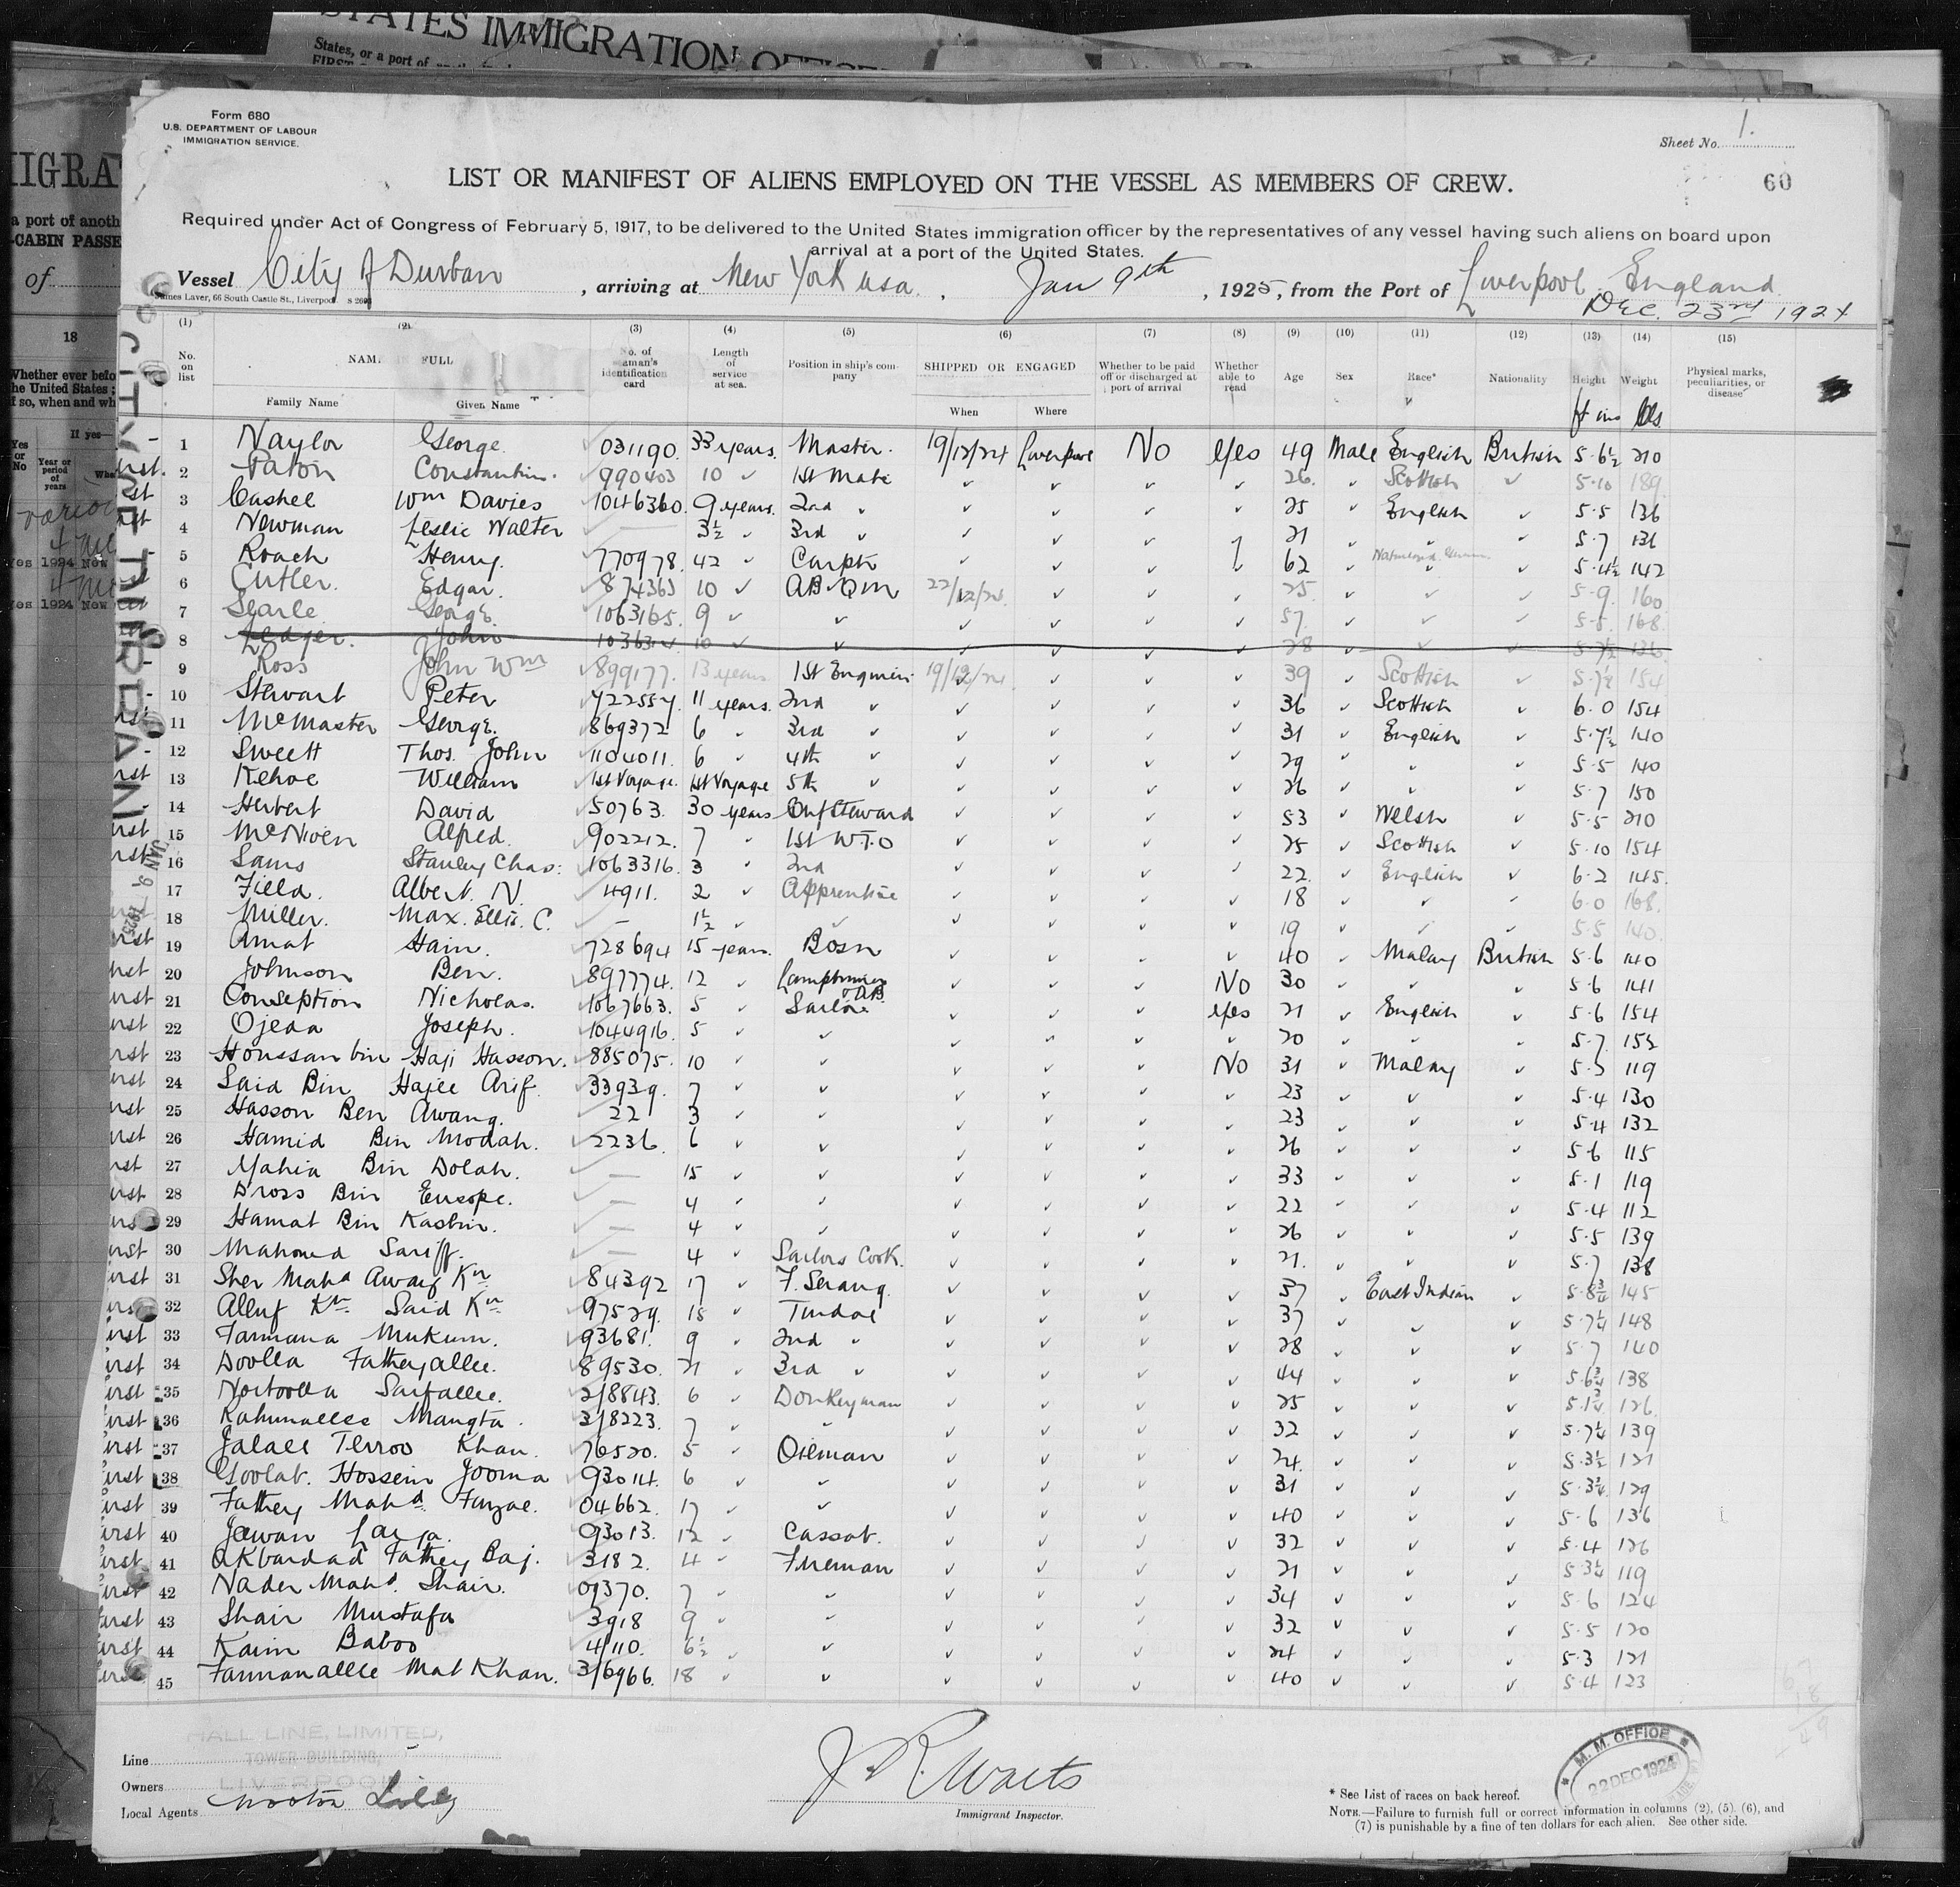 STATES IMMIGRATION OFFICE
States, or a port of
Form 680
U.S. DEPARTMENT OF LABOUR
IMMIGRATION SERVICE.
Sheet No. 1.
LIST OR MANIFEST OF ALIENS EMPLOYED ON THE VESSEL AS MEMBERS OF CREW.
60
Required under Act of Congress of February 5, 1917, to be delivered to the United States immigration officer by the representatives of any vessel having such aliens on board upon
arrival at a port of the United States.
Vessel City of Durban, arriving at New York usa., Jan 9th, 1925, from the Port of Liverpool England
James Laver, 66 South Castle St., Liverpool.
Dec. 23rd 1924
(1) (2) (3) (4) (5) (6) (7) (8) (9) (10) (11) (12) (13) (14) (15)
No. on list NAME IN FULL No. of seaman's identification card Length of service at sea. Position in ship's company SHIPPED OR ENGAGED Whether to be paid off or discharged at port of arrival Whether able to read Age Sex Race* Nationality Height Weight Physical marks, peculiarities, or disease
Family Name Given Name When Where ft ins lbs
1 Naylor George 031190. 33 years. Master. 19/12/24 Liverpool No Yes 49 Male English British 5·6½ 210
2 Paton Constantine. 990403 10 ✓ 1st Mate ✓ ✓ ✓ ✓ 26. ✓ Scottish ✓ 5·10 189
3 Cashel Wm Davies 1046360. 9 years. 2nd ✓ ✓ ✓ ✓ ✓ 25 ✓ English ✓ 5·5 136
4 Newman Leslie Walter — 3½ ✓ 3rd ✓ ✓ ✓ ✓ ✓ 21 ✓ ✓ ✓ 5·7 136
5 Roach Henry. 770978. 42 ✓ Carptr ✓ ✓ ✓ ✓ 62 ✓ ✓ ✓ 5·4½ 142
6 Cutler. Edgar. 874363 10 ✓ AB·Qm 22/12/24. ✓ ✓ ✓ 25. ✓ ✓ ✓ 5·9. 160
7 Searle George. 1063165. 9 ✓ ✓ ✓ ✓ ✓ ✓ 57. ✓ ✓ ✓ 5·5. 168.
8 Ledger. John 10 ✓ ✓ ✓ ✓ ✓ ✓ 28 ✓ ✓ ✓ 5·7½ 136
9 Ross John Wm 899177. 13 years 1st Engineer 19/12/24 ✓ ✓ ✓ 39 ✓ Scottish ✓ 5·7½ 154
10 Stewart Peter 722554. 11 years. 2nd ✓ ✓ ✓ ✓ ✓ 36 ✓ Scottish ✓ 6·0 154
11 McMaster George. 869372 6 ✓ 3rd ✓ ✓ ✓ ✓ ✓ 31 ✓ English ✓ 5·7½ 140
12 Sweett Thos. John 1104011. 6 ✓ 4th ✓ ✓ ✓ ✓ ✓ 29 ✓ ✓ ✓ 5·5 140
13 Kehoe William 1st Voyage. 1st Voyage 5th ✓ ✓ ✓ ✓ ✓ 26 ✓ ✓ ✓ 5·7 150
14 Herbert David 50763. 30 years Chf Steward ✓ ✓ ✓ ✓ 53 ✓ Welsh ✓ 5·5 210
15 McNiven Alfred. 902212. 7 ✓ 1st W.T.O ✓ ✓ ✓ ✓ 25 ✓ Scottish ✓ 5·10 154
16 Sams Stanley Chas: 1063316. 3 ✓ 2nd ✓ ✓ ✓ ✓ 22. ✓ English ✓ 6·2 145.
17 Field. Albert. N. 4911. 2 ✓ Apprentice ✓ ✓ ✓ ✓ 18 ✓ ✓ ✓ 6·0 168.
18 Miller. Max. Ellis. C. — 1½ ✓ ✓ ✓ ✓ ✓ ✓ 19 ✓ ✓ ✓ 5·5 140.
19 Amat Hain. 728694 15 years. Bosn ✓ ✓ ✓ ✓ 40 ✓ Malay British 5·6 140
20 Johnson Ben. 897774. 12 ✓ Lamptrimer & AB ✓ ✓ ✓ No 30 ✓ ✓ ✓ 5·6 141
21 Conseption Nicholas. 1067663. 5 ✓ Sailor ✓ ✓ ✓ Yes 21 ✓ English ✓ 5·6 154
22 Ojeda Joseph. 1044916. 5 ✓ ✓ ✓ ✓ ✓ ✓ 20 ✓ ✓ ✓ 5·7. 152
23 Houssan bin Haji Hasson. 885075. 10 ✓ ✓ ✓ ✓ ✓ No 31 ✓ Malay ✓ 5·3 119
24 Said Bin Hajee Arif. 33939. 7 ✓ ✓ ✓ ✓ ✓ ✓ 23 ✓ ✓ ✓ 5·4 130
25 Hasson Ben Awang. 22 3 ✓ ✓ ✓ ✓ ✓ ✓ 23 ✓ ✓ ✓ 5·4 132
26 Hamid Bin Modah. 2236. 6 ✓ ✓ ✓ ✓ ✓ ✓ 26 ✓ ✓ ✓ 5·6 115
27 Yahia Bin Dolah. — 15 ✓ ✓ ✓ ✓ ✓ ✓ 33 ✓ ✓ ✓ 5·1 119
28 Dross Bin Eusope. — 4 ✓ ✓ ✓ ✓ ✓ ✓ 22 ✓ ✓ ✓ 5·4 112
29 Hamat Bin Kasbin. — 4 ✓ ✓ ✓ ✓ ✓ ✓ 26 ✓ ✓ ✓ 5·5 139
30 Mahomed Sariff. — 4 ✓ Sailors Cook. ✓ ✓ ✓ ✓ 21. ✓ ✓ ✓ 5·7 138
31 Sher Mahd Awaij Kn 84392 17 ✓ F. Serang. ✓ ✓ ✓ ✓ 37 ✓ East Indian ✓ 5·8¾ 145
32 Alluf Kn Said Kn 97529. 15 ✓ Tindal ✓ ✓ ✓ ✓ 37 ✓ ✓ ✓ 5·7¼ 148
33 Farmana Mukum. 93681 9 ✓ 2nd ✓ ✓ ✓ ✓ ✓ 28 ✓ ✓ ✓ 5·7 140
34 Doolla Fatheyallee. 89530. 21 ✓ 3rd ✓ ✓ ✓ ✓ ✓ 44 ✓ ✓ ✓ 5·6¾ 138
35 Nortoolla Saifallee. 2/8843. 6 ✓ Donkeyman ✓ ✓ ✓ ✓ 25 ✓ ✓ ✓ 5·1¾ 126.
36 Rahimallee Mangta. 3/8223. 7 ✓ ✓ ✓ ✓ ✓ ✓ 32 ✓ ✓ ✓ 5·7¼ 139
37 Jalall Terroo Khan. 76520. 5 ✓ Oilman ✓ ✓ ✓ ✓ 24. ✓ ✓ ✓ 5·3½ 121
38 Goolab. Hossein Jooma 93014. 6 ✓ ✓ ✓ ✓ ✓ ✓ 31 ✓ ✓ ✓ 5·3¾ 129
39 Fathey Mahd Fayzae. 04662. 17 ✓ ✓ ✓ ✓ ✓ ✓ 40 ✓ ✓ ✓ 5·6 136
40 Jewan 93013. 12 ✓ Cassab. ✓ ✓ ✓ ✓ 32 ✓ ✓ ✓ 5·4 126
41 Akbardad Fathey Baj. 3182. 4 ✓ Fireman ✓ ✓ ✓ ✓ 21 ✓ ✓ ✓ 5·3¼ 119
42 Nader Mahd. Shair. 09370. 7 ✓ ✓ ✓ ✓ ✓ ✓ 34 ✓ ✓ ✓ 5·6 124
43 Shair Mustafa 3918 9 ✓ ✓ ✓ ✓ ✓ ✓ 32 ✓ ✓ ✓ 5·5 120
44 Kaim Baboo 4/110. 6½ ✓ ✓ ✓ ✓ ✓ ✓ 24 ✓ ✓ ✓ 5·3 121
45 Farmanallee Mat Khan. 3/6966. 18 ✓ ✓ ✓ ✓ ✓ ✓ 40 ✓ ✓ ✓ 5·4 123
HALL LINE, LIMITED,
TOWER BUILDING,
LIVERPOOL
Line
Owners
Local Agents Norton Lilly
J R. Watts
Immigrant Inspector.
M. M. OFFICE
22 DEC 1924
* See List of races on back hereof.
NOTE.—Failure to furnish full or correct information in columns (2), (5), (6), and
(7) is punishable by a fine of ten dollars for each alien. See other side.